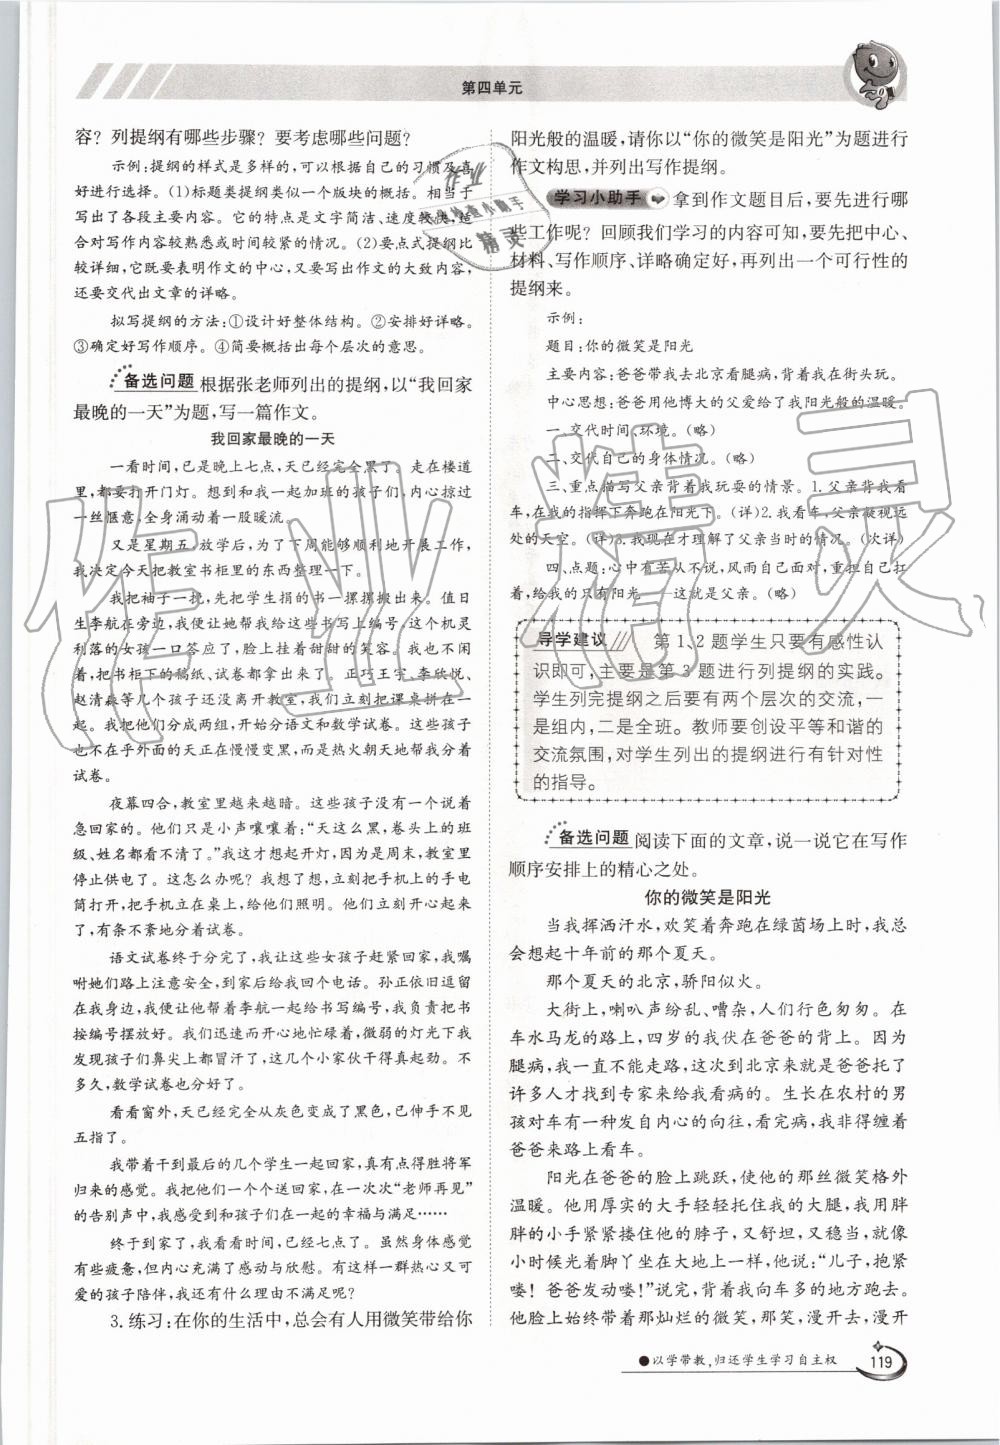 第四单元
容？列提纲有哪些步骤？要考虑哪些问题？
示例：提纲的样式是多样的，可以根据自己的习惯及喜
好进行选择。（1）标题类提纲类似一个版块的概括。相当于
写出了各段主要内容。它的特点是文字简洁、速度较快，适
合对写作内容较熟悉或时间较紧的情况。（2）要点式提纲比
较详细，它既要表明作文的中心，又要写出作文的大致内容，
还要交代出文章的详略。
拟写提纲的方法：①设计好整体结构。②安排好详略。
③确定好写作顺序。④简要概括出每个层次的意思。
备选问题 根据张老师列出的提纲，以“我回家
最晚的一天”为题，写一篇作文。
我回家最晚的一天
一看时间，已是晚上七点，天已经完全黑了。走在楼道
里，都要打开门灯。想到和我一起加班的孩子们，内心掠过
一丝惬意，全身涌动着一股暖流。
又是星期五，放学后，为了下周能够顺利地开展工作，
我决定今天把教室书柜里的东西整理一下。
我把袖子一挽，先把学生捐的书一摞摞搬出来。值日
生李航在旁边，我便让她帮我给这些书写上编号，这个机灵
利落的女孩一口答应了，脸上挂着甜甜的笑容。我也不闲
着，把书柜下的机褐、试卷都拿出来了。正巧王宇、李欣悦、
赵清淼等几个孩子还没离开教室，我们立刻把课桌拼在一
起。我把他们分成两组，开始分语文和数学试卷。这些孩子
也不在乎外面的天正在慢慢变黑，而是热火朝天地帮我分着
试卷。
夜幕四合，教室里越来越暗。这些孩子没有一个说着
急回家的。他们只是小声嚷嚷着：“天这么黑，卷头上的班
级、姓名都看不清了。”我这才想起开灯，因为是周末，教室里
停止供电了。这怎么办呢？我想了想，立刻把手机上的手电
筒打开，把手机立在桌上，给他们照明。他们立刻开心起来
了，有条不紊地分着试卷。
语文试卷终于分完了，我让这些女孩子赶紧回家，我嘱
咐她们路上注意安全，到家后给我回个电话。孙正依旧逗留
在我身边，我便让他帮着李航一起给书写编号，我负责把书
按编号摆放好。我们迅速而开心地忙碌着，微弱的灯光下我
发现孩子们鼻尖上都冒汗了，这几个小家伙干得真起劲。不
多久，数学试卷也分好了。
看看窗外，天已经完全从灰色变成了黑色，已伸手不见
五指了。
我带着干到最后的几个学生一起回家，真有点得胜将军
归来的感觉。我把他们一个个送回家，在一次次“老师再见”
的告别声中，我感受到和孩子们在一起的幸福与满足……
终于到家了，我看看时间，已经七点了。虽然身体感觉
有些疲惫，但内心充满了感动与欣慰。有这样一群热心又可
爱的孩子陪伴，我还有什么理由不满足呢？
3. 练习：在你的生活中，总会有人用微笑带给你
阳光般的温暖，请你以“你的微笑是阳光”为题进行
作文构思，并列出写作提纲。
学习小助手 拿到作文题目后，要先进行哪
些工作呢？回顾我们学习的内容可知，要先把中心、
材料、写作顺序、详略确定好，再列出一个可行性的
提纲来。
示例：
题目：你的微笑是阳光
主要内容：爸爸带我去北京看腿病，背我在街头玩。
中心思想：爸爸用他博大的父爱给了我阳光般的温暖。
一、交代时间、环境。（略）
二、交代自己的身体情况。（略）
三、重点描写父亲背着我玩耍的情景。1. 父亲背我看
车，在我的指挥下奔跑在阳光下。（详）2. 我看车，父亲凝视远
处的天空。（详）3. 我现在才理解了父亲当时的情况。（次详）
四、点题：心中有苦从不说，风雨自己面对，重担自己扛，
给我的只有阳光——这就是父亲。（略）
导学建议 第1、2题学生只要有感性认
识即可，主要是第3题进行列提纲的实践。
学生列完提纲之后要有两个层次的交流，一
是组内，二是全班。教师要创设平等和谐的
交流氛围，对学生列出的提纲进行有针对性
的指导。
备选问题 阅读下面的文章，说一说它在写作
顺序安排上的精心之处。
你的微笑是阳光
当我挥洒汗水，欢笑着奔跑在绿茵场上时，我总
会想起十年前的那个夏天。
那个夏天的北京，骄阳似火。
大街上，喇叭声纷乱、嘈杂，人们行色匆匆。在
车水马龙的路上，四岁的我伏在爸爸的背上。因为
腿病，我一直不能走路，这次到北京来就是爸爸托了
许多人才找到专家来给我看病的。生长在农村的男
孩对车有一种发自内心的向往，看完病，我就央求着
爸爸来路上看车。
阳光在爸爸的脸上跳跃，使他的那丝微笑格外
温暖。他用厚实的大手轻轻托住我的大腿，我用胖
胖的小手紧紧搂住他的脖子，又舒坦，又稳当，就像
小时候光着脚丫坐在大地上一样，他说：“儿子，抱紧
喽！爸爸发动喽！”说完，背着我向车多的地方跑去。
他脸上始终带着那灿烂的微笑，那笑，漫开去，漫开
●以学带教，归还学生学习自主权
119
作业
检查小助手
精灵
作业精灵